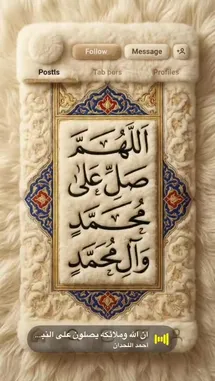 Follow Message
Postls Tab bers Profiles
اَللّٰهُمَّ
صَلِّ عَلىٰ
مُحَمَّدٍ
وَآلِ مُحَمَّدٍ
ان الله وملائكه يصلون على النبـ...
أحمد اللحدان